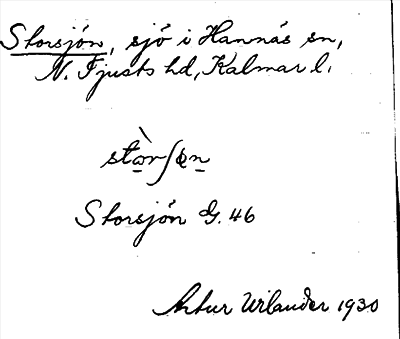 Storsjön, sjö i Hannäs sn,
N. Tjusts hd, Kalmar l.
Storsjön G. 46
Artur Urlander 1930